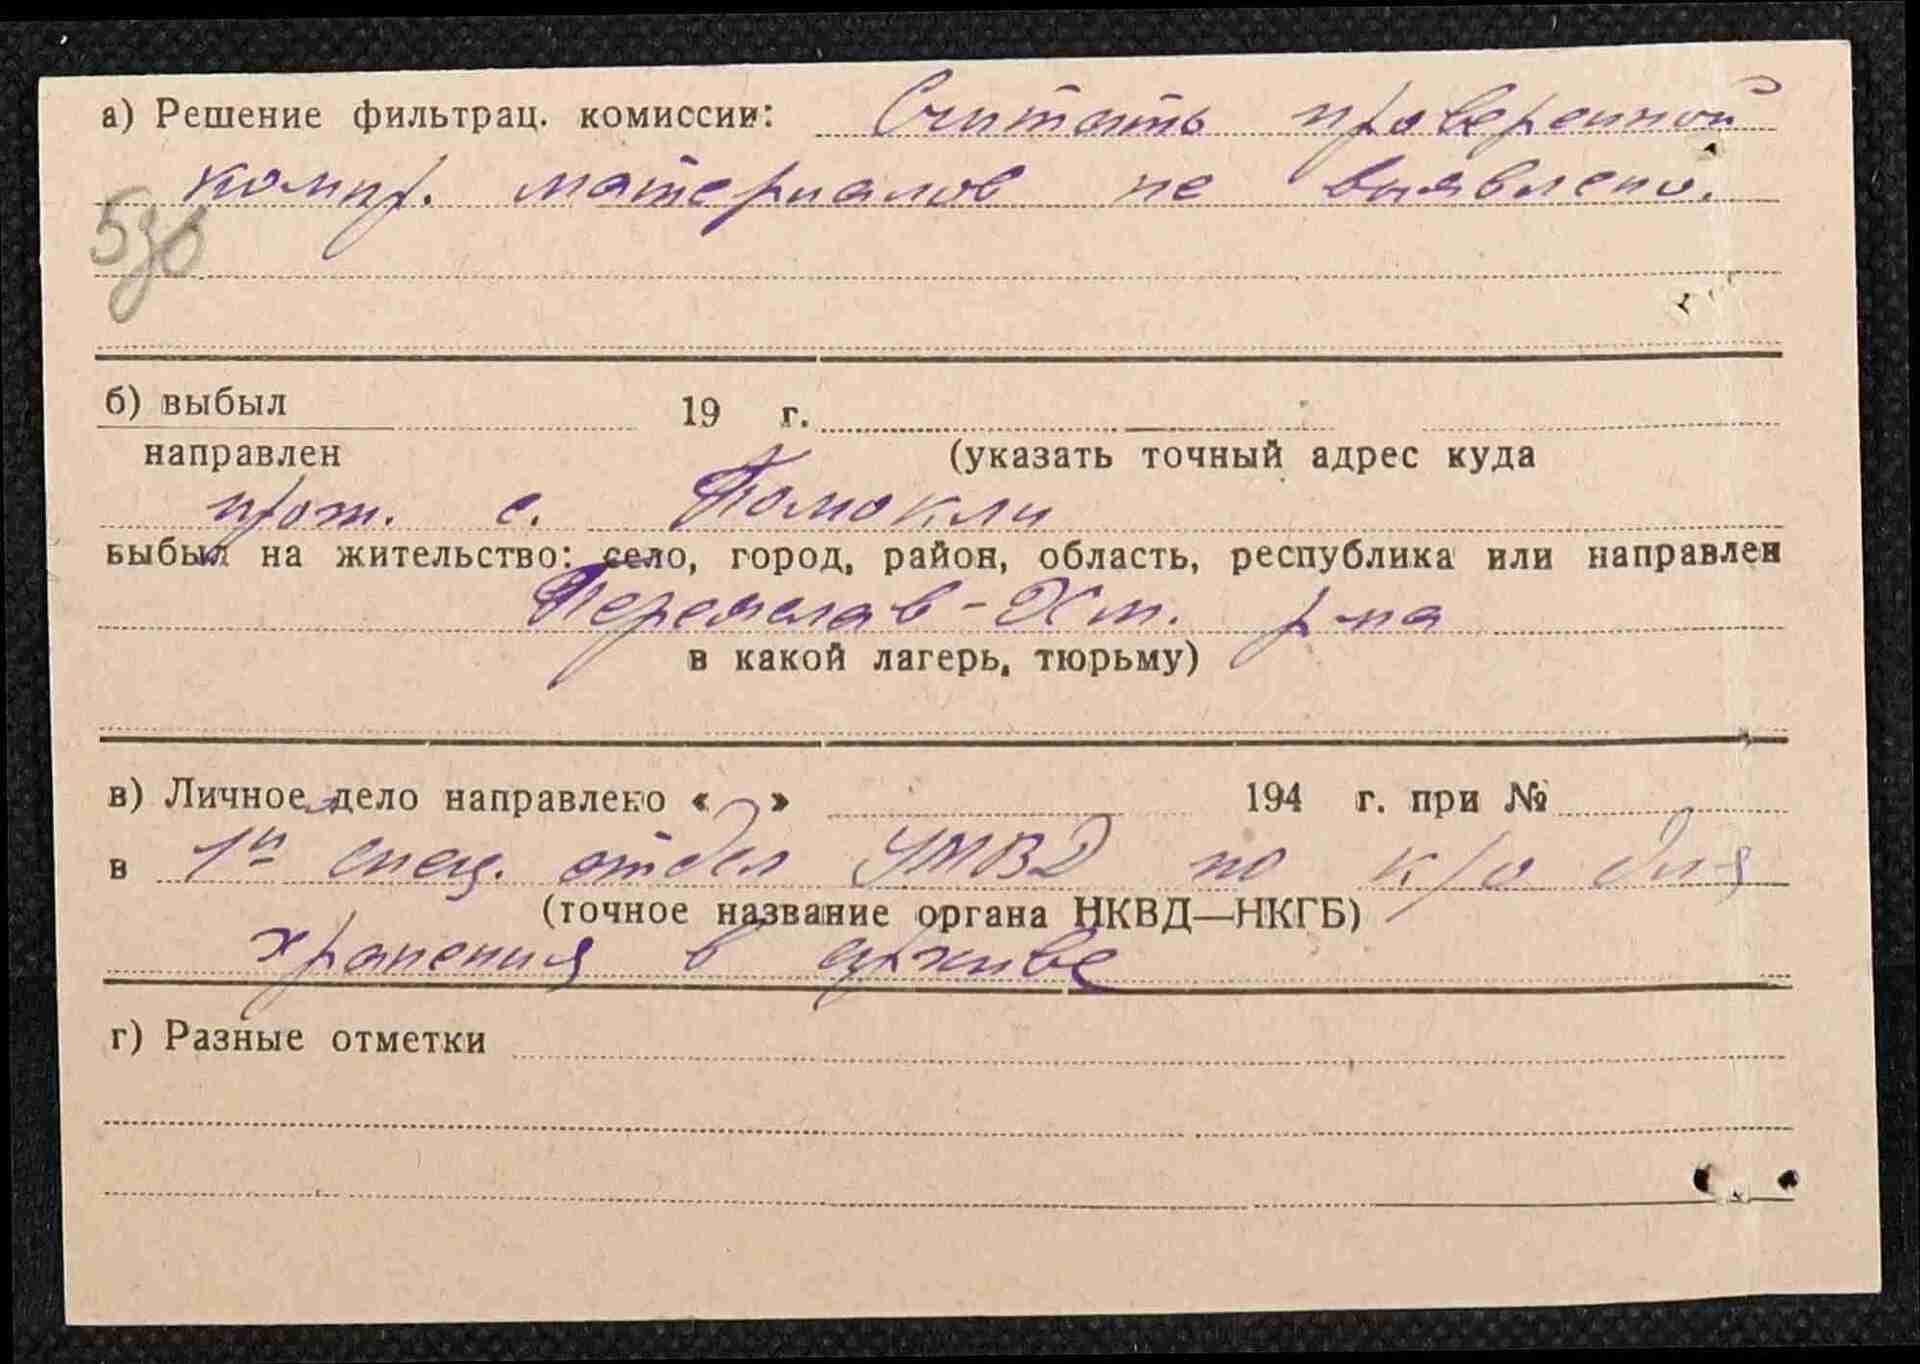 а) Решение фильтрац. комиссии: Считать проверенной
компр. материалов не выявлено.
б) выбыл 19 г.
направлен (указать точный адрес куда
прож. с. Помокли
выбыл на жительство: село, город, район, область, республика или направлен
Переяслав-Хм. р-на
в какой лагерь, тюрьму)
в) Личное дело направлено « » 194 г. при №
в 1й спец. отдел УМВД по к/о для
(точное название органа НКВД—НКГБ)
хранения в архиве
г) Разные отметки